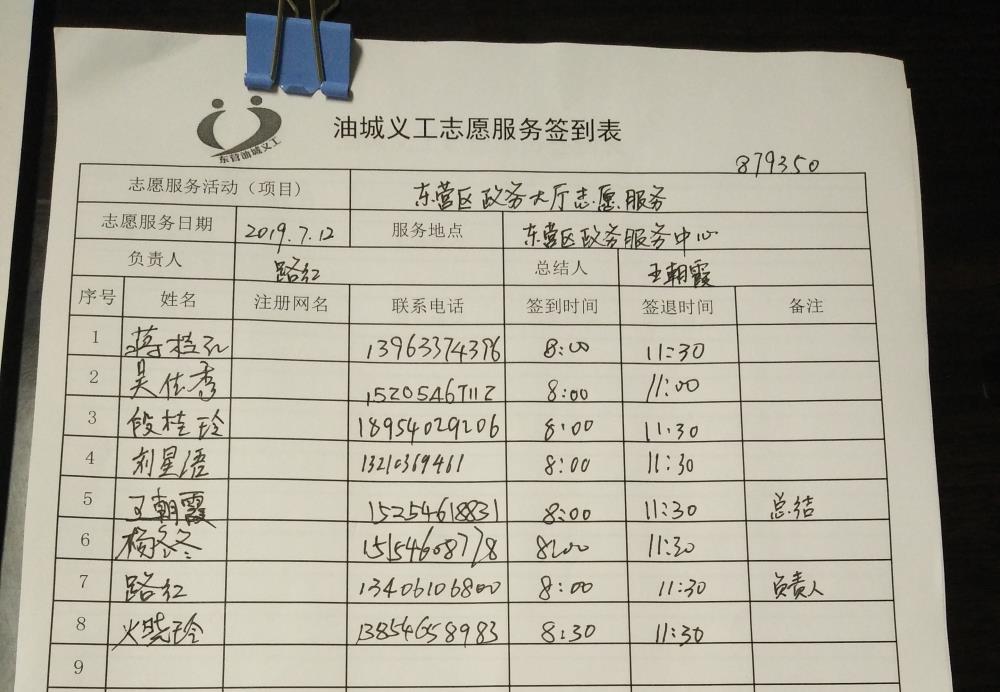 油城义工志愿服务签到表
东营油城义工
879350
志愿服务活动（项目） 东营区政务大厅志愿服务
志愿服务日期 2019.7.12 服务地点 东营区政务服务中心
负责人 路红 总结人 王朝霞
序号 姓名 注册网名 联系电话 签到时间 签退时间 备注
1 蒋桂 13963374396 8:00 11:30
2 吴佳秀 1520546 8:00 11:00
3 段桂玲 18954029206 8:00 11:30
4 刘星语 13210369461 8:00 11:30
5 王朝霞 15254618831 8:00 11:30 总结
6 杨冬冬 15154608778 8:00 11:30
7 路红 13406106800 8:00 11:30 负责人
8 玲 13854658983 8:30 11:30
9